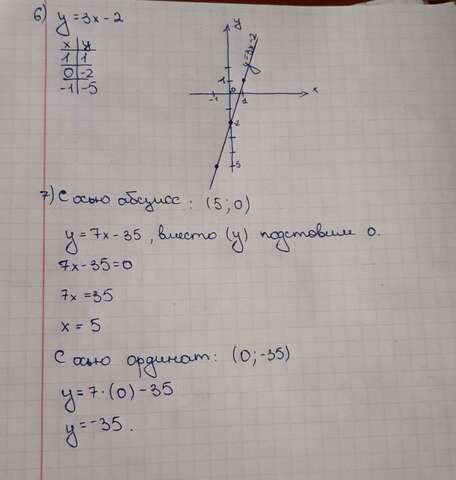 6) y = 3x - 2
x | y
1 | 1
0 | -2
-1 | -5
y
y=3x-2
1
0
-1
1
x
2
5
7) С осью абсцисс: (5; 0)
y = 7x - 35, вместо (y) подставим 0.
7x - 35 = 0
7x = 35
x = 5
С осью ординат: (0; -35)
y = 7·(0) - 35
y = -35.